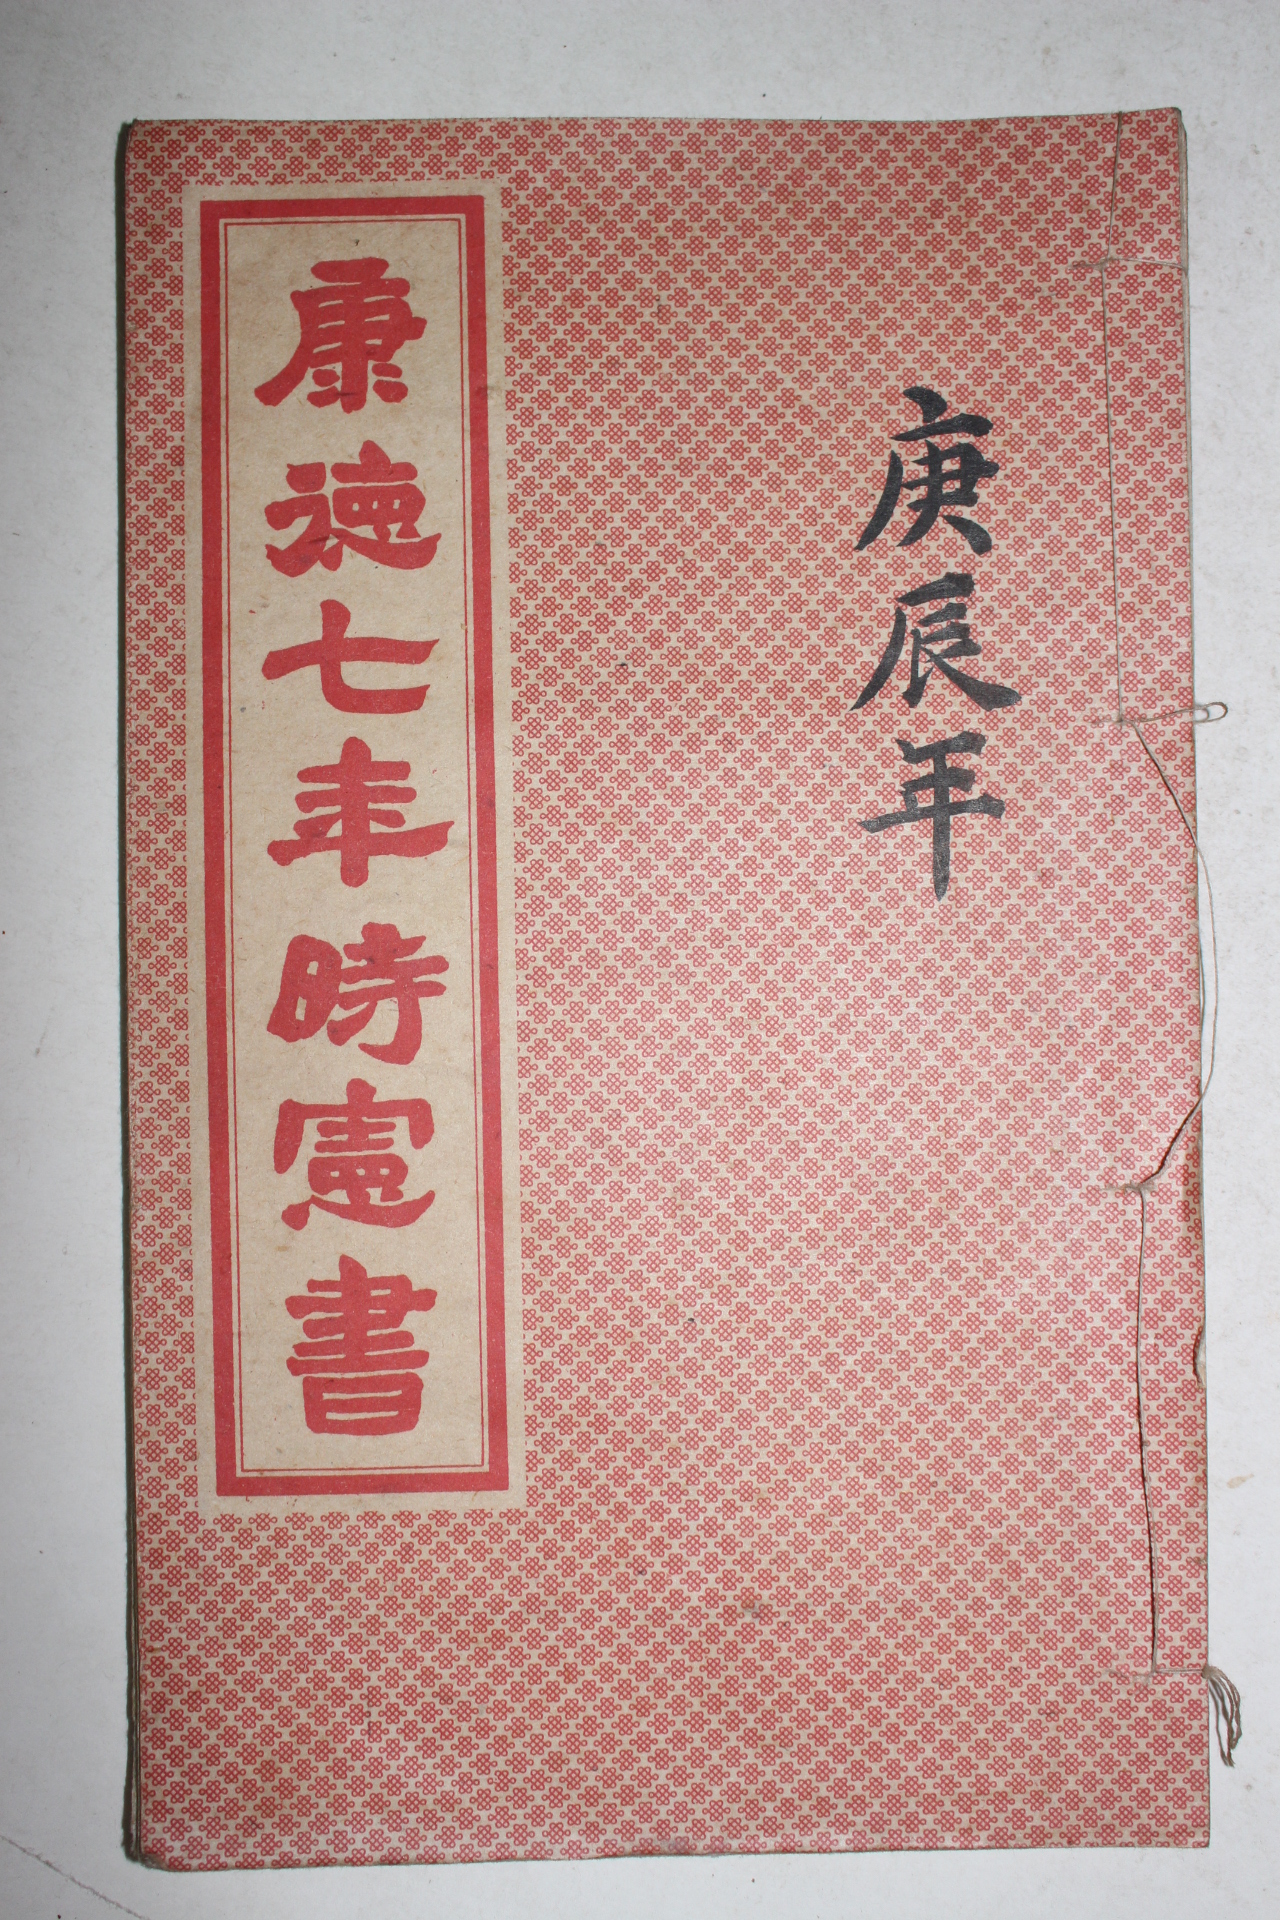 庚辰年
康德七年時憲書